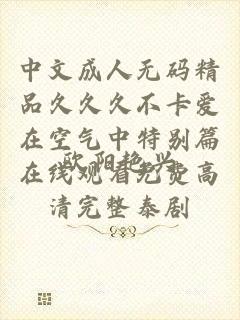 中文成人无码精
品久久久不卡爱
在空气中特别篇
在线观看免费高
清完整泰剧
欧阳艳兴